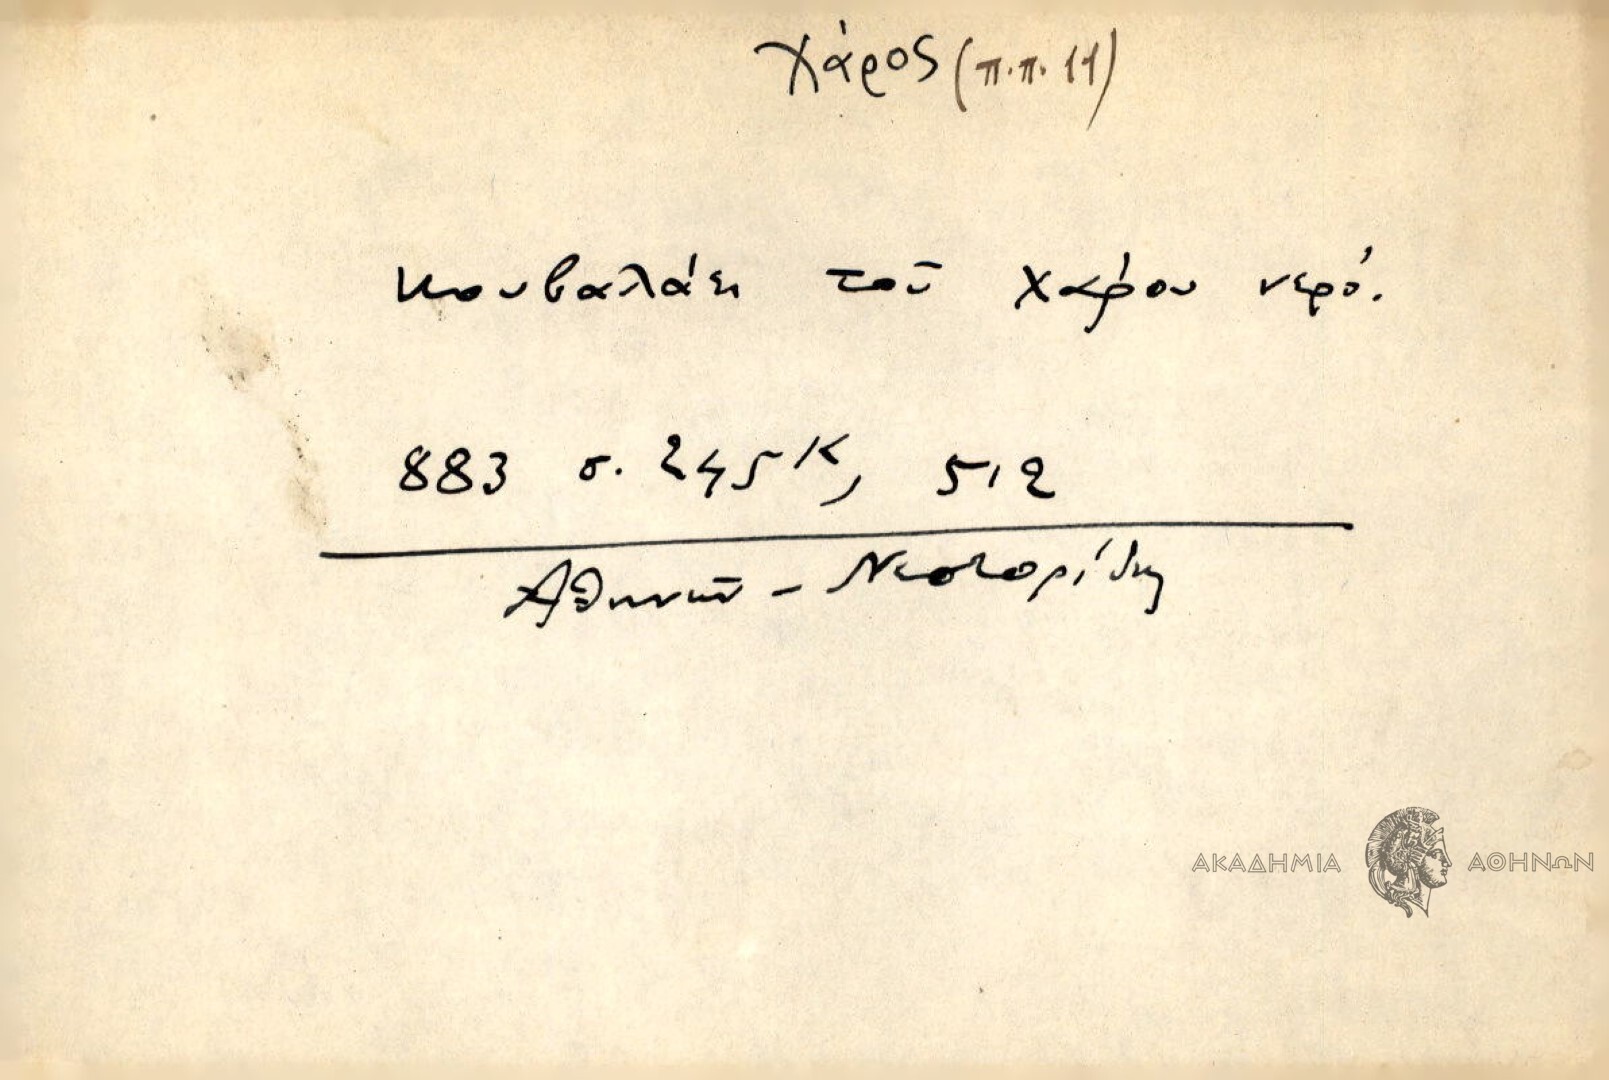 Χάρος (π.π. 11)
Κουβαλάει τοῦ Χάρου νερό.
883 σ. 245 Κ, 512
Ἀθηνῶν - Νεστορίδη
ΑΚΑΔΗΜΙΑ ΑΘΗΝΩΝ